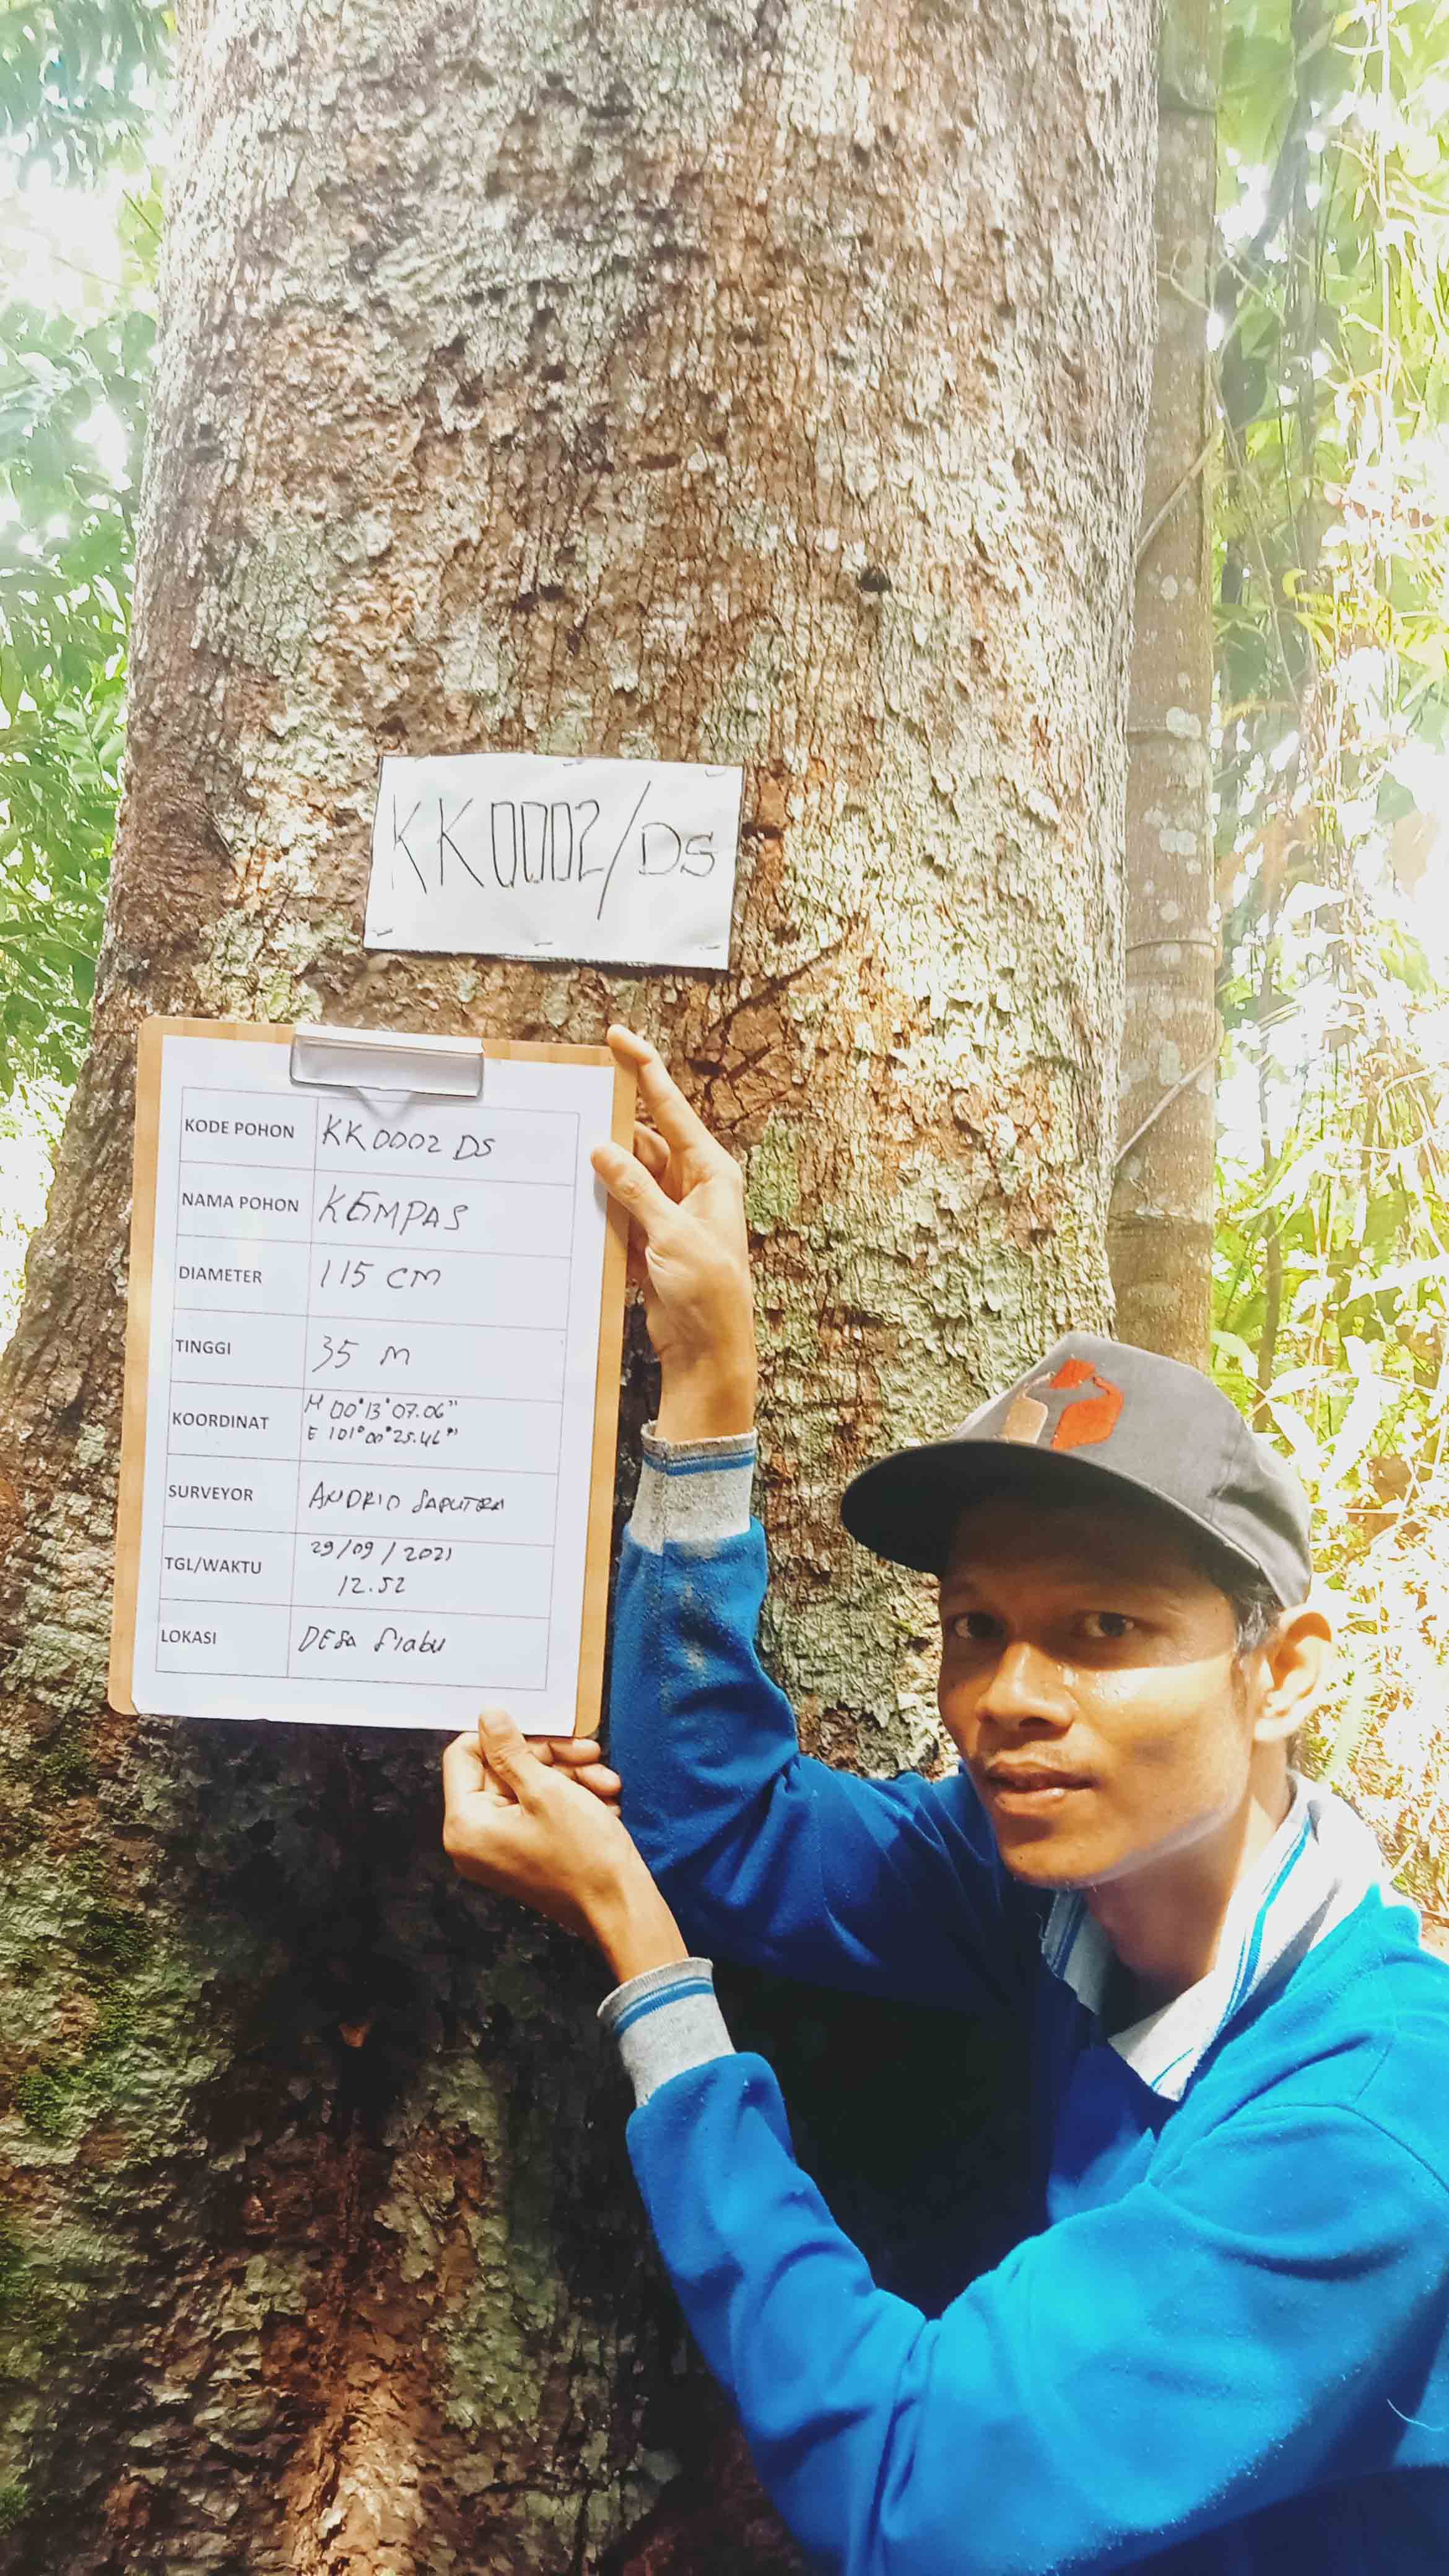 KK0002/DS
KODE POHON KK0002 DS
NAMA POHON KEMPAS
DIAMETER 115 CM
TINGGI 35 M
KOORDINAT N 00°13'07.06"
E 101°00'25.46"
SURVEYOR ANDRIO SAPUTRA
TGL/WAKTU 29/09/2021
12.52
LOKASI DESA SIABU